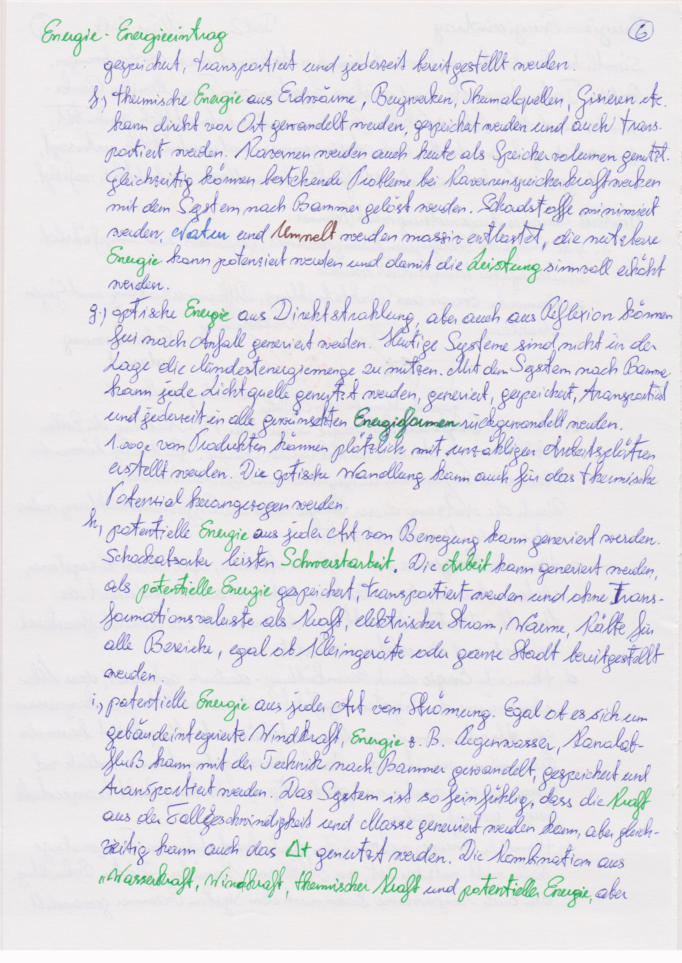 Energie - Energieeintrag
6
gespeichert, transportiert und jederzeit bereitgestellt werden.
f.) thermische Energie aus Erdwärme, Bergwerken, Thermalquellen, Gisieren etc.
kann direkt vor Ort gewandelt werden, gespeichert werden und auch trans-
portiert werden. Kavernen werden auch heute als Speichervolumen genutzt.
Gleichzeitig können bestehende Probleme bei Kavernenspeicherkraftwerken
mit dem System nach Bammer gelöst werden. Schadstoffe minimiert
werden, Natur und Umwelt werden massiv entlastet, die nutzbare
Energie kann potenziert werden und damit die Leistung sinnvoll erhöht
werden.
g.) optische Energie aus Direktstrahlung, aber auch aus Reflexion können
frei nach Anfall generiert werden. Heutige Systeme sind nicht in der
Lage die Mindestenergiemenge zu nutzen. Mit dem System nach Bammer
kann jede Lichtquelle genutzt werden, generiert, gespeichert, transportiert
und jederzeit in alle gewünschten Energieformen rückgewandelt werden.
1.000e von Produkten können plötzlich mit unzähligen Arbeitsplätzen
erstellt werden. Die optische Wandlung kann auch für das thermische
Potenzial herangezogen werden.
h.) potentielle Energie aus jeder Art von Bewegung kann generiert werden.
leisten Schwerstarbeit. Die Arbeit kann generiert werden,
als potentielle Energie gespeichert, transportiert werden und ohne Trans-
formationsverluste als Kraft, elektrischer Strom, Wärme, Kälte für
alle Bereiche, egal ob Kleingeräte oder ganze Stadt bereitgestellt
werden.
i.) potentielle Energie aus jeder Art von Strömung. Egal ob es sich um
gebäudeintegrierte Windkraft, Energie z. B. Regenwasser, Kanalab-
fluß kann mit der Technik nach Bammer gewandelt, gespeichert und
transportiert werden. Das System ist so feinfühlig, dass die Kraft
aus der Fallgeschwindigkeit und Masse generiert werden kann, aber gleich-
zeitig kann auch das Δt genutzt werden. Die Kombination aus
"Wasserkraft, Windkraft, thermischer Kraft und potentieller Energie, aber